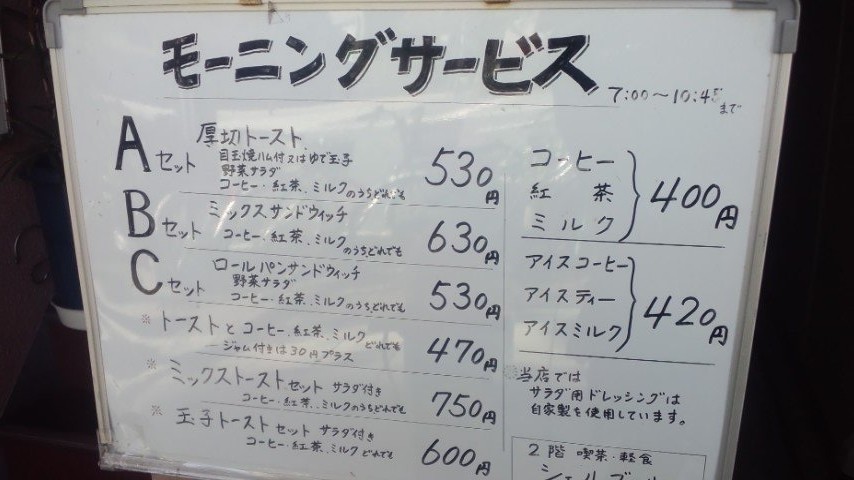 モーニングサービス
7:00〜10:45まで
Aセット 厚切トースト、
目玉焼ハム付又はゆで玉子
野菜サラダ
コーヒー・紅茶、ミルクのうちどれでも
530円
Bセット ミックスサンドウィッチ
コーヒー、紅茶、ミルクのうちどれでも
630円
Cセット ロールパンサンドウィッチ
野菜サラダ
コーヒー・紅茶、ミルクのうちどれでも
530円
※トーストとコーヒー、紅茶、ミルクどれでも
ジャム付きは30円プラス
470円
※ミックストーストセット サラダ付き
コーヒー、紅茶、ミルクのうちどれでも
750円
※玉子トーストセット サラダ付き
コーヒー、紅茶、ミルクどれでも
600円
コーヒー
紅茶
ミルク
400円
アイスコーヒー
アイスティー
アイスミルク
420円
※当店では
サラダ用ドレッシングは
自家製を使用しています。
2階 喫茶・軽食